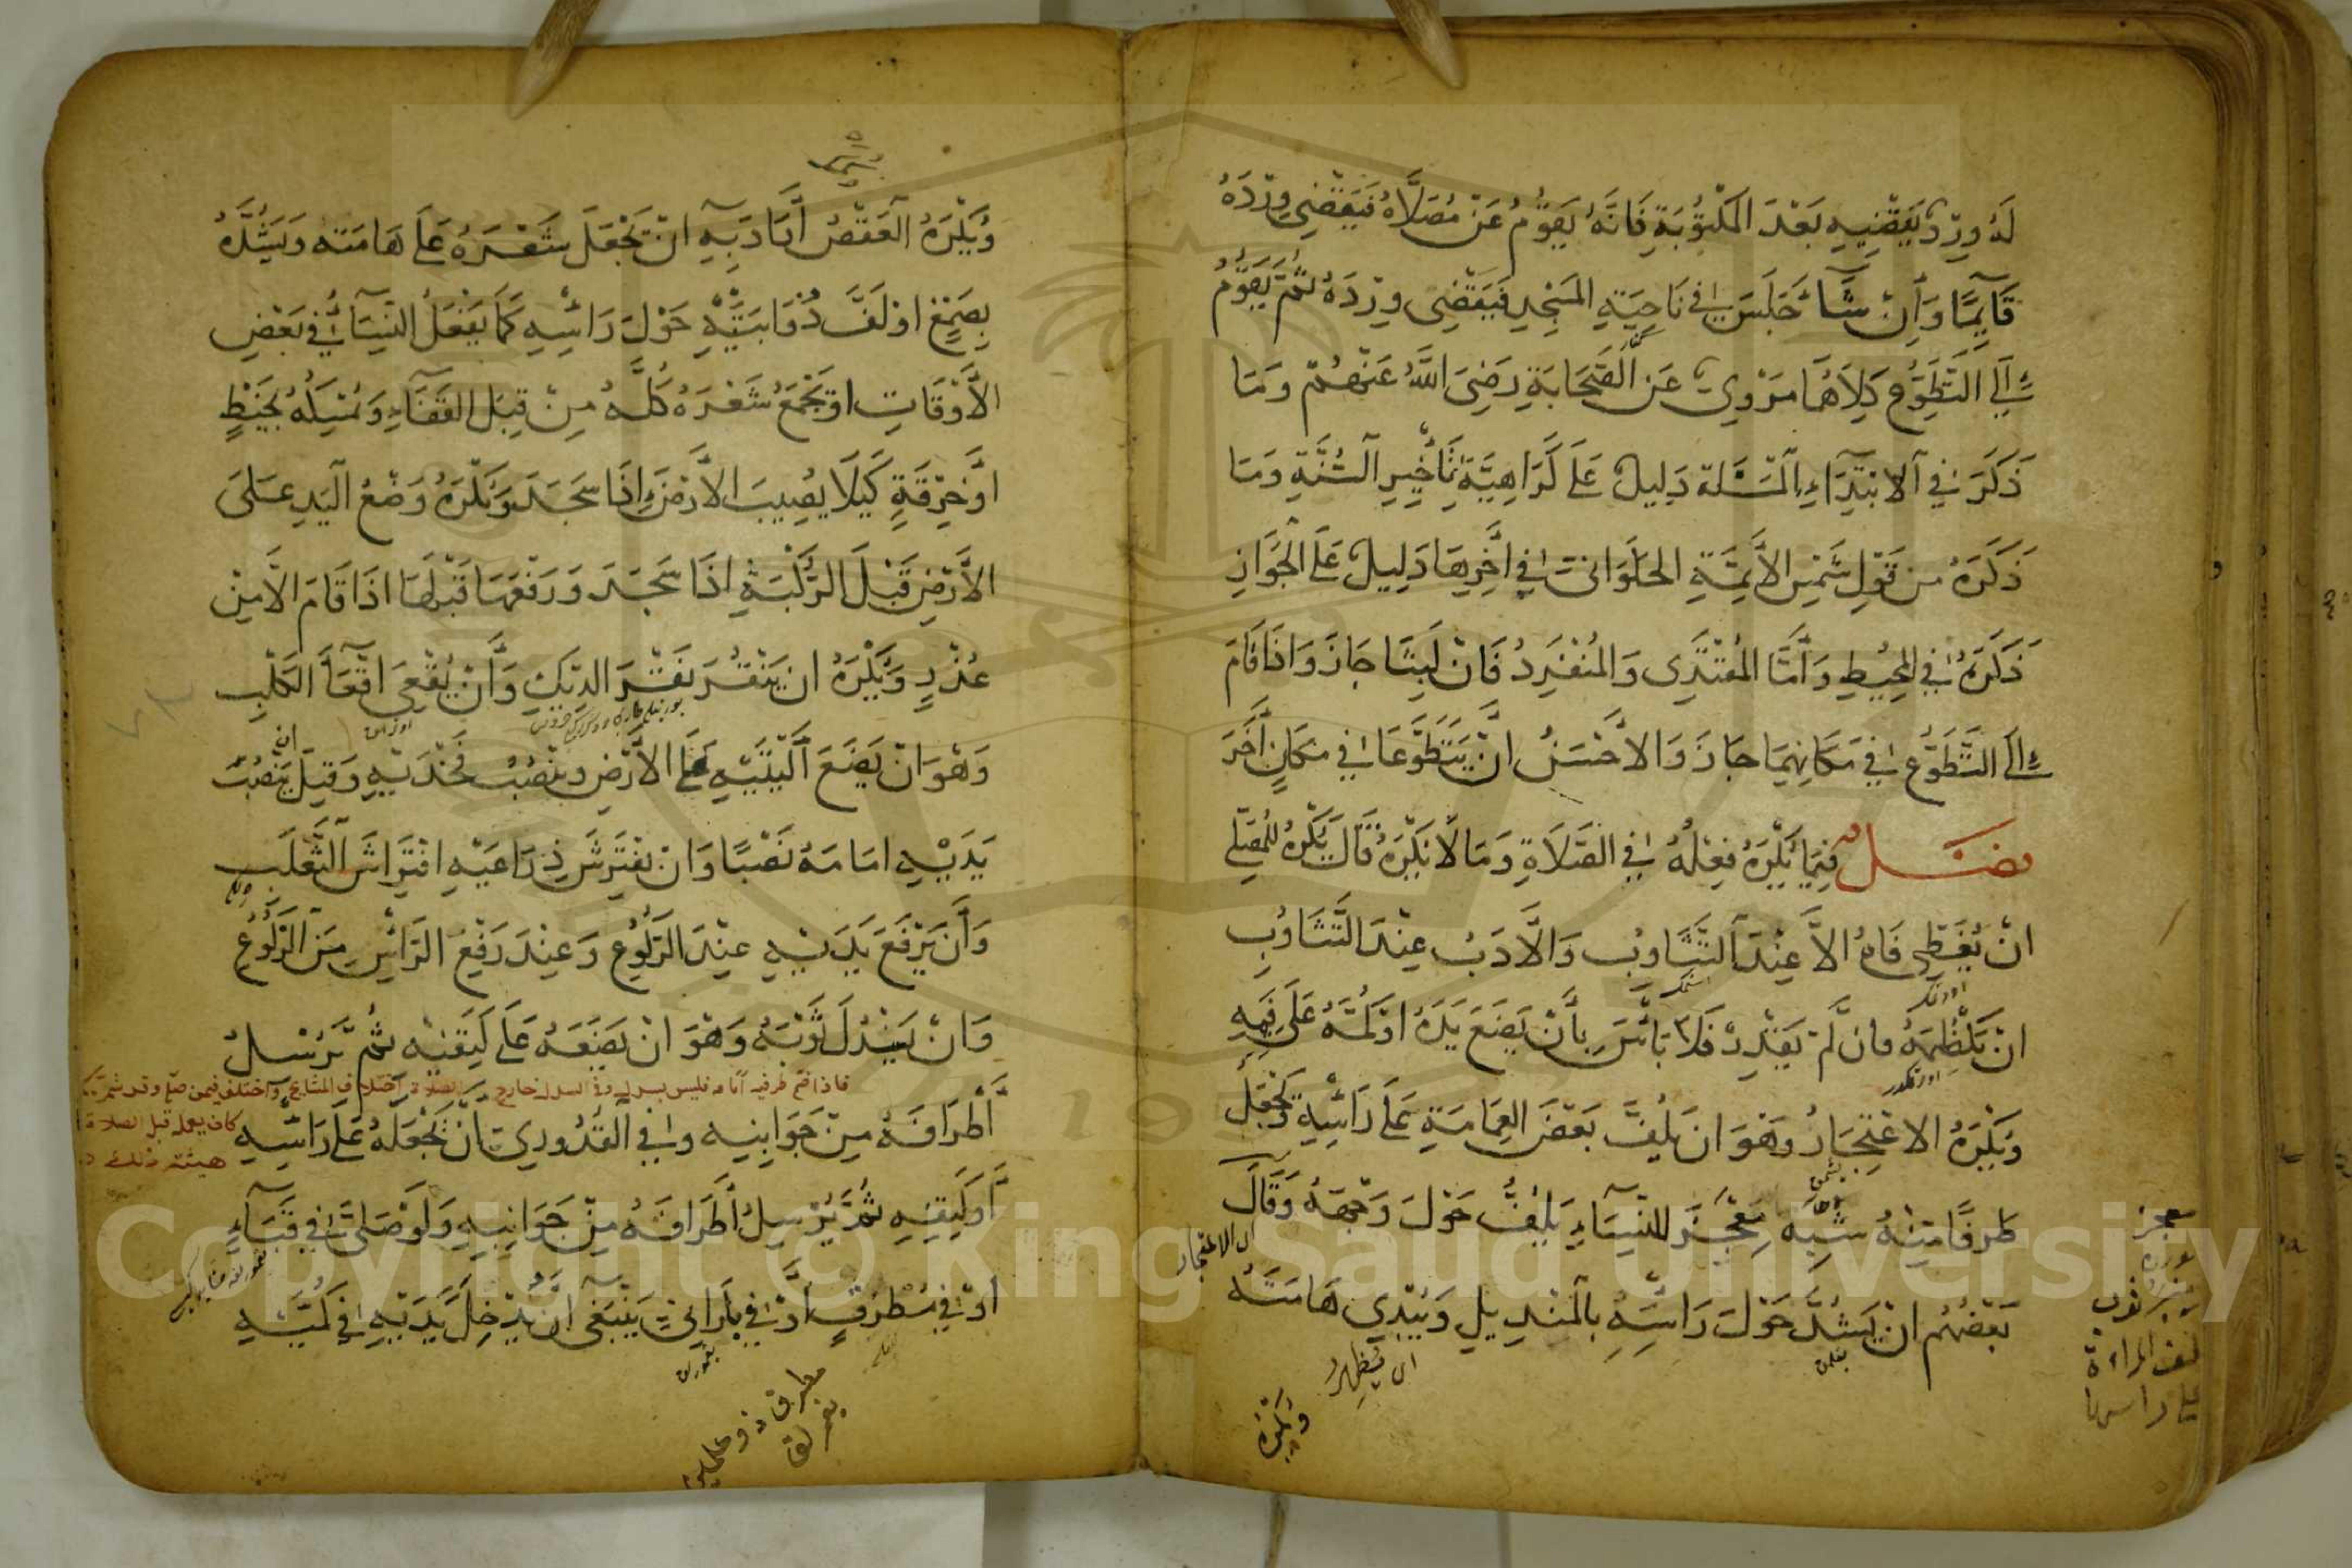 لَهُ وِرْدٌ يَقْضِيهِ بَعْدَ الْمَكْتُوبَةِ فَإِنَّهُ يَقُومُ عَنْ مُصَلَّاهُ فَيَقْضِي وِرْدَهُ
قَائِمًا وَإِنْ شَاءَ جَلَسَ فِي نَاحِيَةِ الْمَسْجِدِ فَيَقْضِي وِرْدَهُ ثُمَّ يَقُومُ
إِلَى التَّطَوُّعِ كِلَاهُمَا مَرْوِيٌّ عَنِ الصَّحَابَةِ رَضِيَ اللَّهُ عَنْهُمْ وَمَا
ذَكَرَ فِي الِابْتِدَاءِ الْمَسْئَلَة دَلِيلٌ عَلَى كَرَاهِيَّةِ تَأْخِيرِ السُّنَّةِ وَمَا
ذَكَرَهُ مِنْ قَوْلِ شَمْسِ الْأَئِمَّةِ الْحَلْوَانِيِّ فِي آخِرِهَا دَلِيلٌ عَلَى الْجَوَازِ
ذَكَرَهُ فِي الْمُحِيطِ وَأَمَّا الْمُقْتَدِى وَالْمُنْفَرِدُ فَإِنْ لَبِثَا جَازَ وَإِذَا قَامَ
إِلَى التَّطَوُّعِ فِي مَكَانِهِمَا جَازَ وَالْأَحْسَنُ أَنْ يَتَطَوَّعَا فِي مَكَانٍ آخَرَ
فَصْلٌ فِيمَا يُكْرَهُ فِعْلُهُ فِي الصَّلَاةِ وَمَا لَا يُكْرَهُ قَالَ يُكْرَهُ لِلْمُصَلِّي
أَنْ يُغَطِّي فَاهُ إِلَّا عِنْدَ التَّثَاوُبِ وَالْأَدَبُ عِنْدَ التَّثَاوُبِ
أَنْ يَكْظِمَهُ فَإِنْ لَمْ يَقْدِرْ فَلَا بَأْسَ بِأَنْ يَضَعَ يَدَهُ أَوْ كُمَّهُ عَلَى فِيهِ
وَيُكْرَهُ الِاعْتِجَارُ وَهُوَ أَنْ يَلُفَّ بَعْضَ الْعِمَامَةِ عَلَى رَأْسِهِ وَيَجْعَلُ
طَرفًا مِنْهُ شِبْهَ مِعْجَزٍ لِلنِّسَاءِ يَلُفُّ حَوْلَ وَجْهِهِ وَقَالَ
بَعْضُهُمْ أَنْ يَشُدَّ حَوْلَ رَأْسِهِ بِالْمَنْدِيلِ وَيُبْدِي هَامَتَهُ
اى الاعتجار
اى يُظْهِرُ
وَيُكْرَهُ
معجز
ثوب
المراءة
على راسها
وَيُكْرَهُ الْعَقْصُ أَرَادَ بِهِ أَنْ يَجْعَلَ شَعْرَهُ عَلَى هَامَتِهِ وَيَشُدَّهُ
بِصَمْغٍ اوْ لَفَّ ذُؤَابَتَيْهِ حَوْلَ رَأْسِهِ كَمَا يَفْعَلُ النِّسَاءُ فِي بَعْضِ
الْأَوْقَاتِ اوْ يَجْمَعُ شَعْرَهُ كُلَّهُ مِنْ قِبَلِ الْقَفَاءِ وَيُمْسِكُهُ بِخَيْطٍ
أَوْ خِرْقَةٍ كَيْلَا يُصِيبَ الْأَرْضَ إِذَا سَجَدَ وَيُكْرَهُ وَضْعُ الْيَدِ عَلَى
الْأَرْضِ قَبْلَ الرُّكْبَةِ إِذَا سَجَدَ وَرَفْعُهَا قَبْلَهَا إِذَا قَامَ إِلَّا مِنْ
عُذْرٍ وَيُكْرَهُ أَنْ يَنْقُرَ نَقْرَ الدِّيكِ وَأَنْ يُقْعِيَ إِقْعَاءَ الْكَلْبِ
وَهُوَ أَنْ يَضَعَ أَلْيَتَيْهِ عَلَى الْأَرْضِ وَيَنْصِبُ فَخْذَيْهِ وَقِيلَ ان يَنْصِبَ
يَدَيْهِ امَامَهُ نَصْبًا وَأَنْ يَفْتَرِشَ ذِرَاعَيْهِ افْتِرَاشَ الثَّعْلَبِ
وَأَنْ يَرْفَعَ يَدَيْهِ عِنْدَ الرُّكُوعِ وَعِنْدَ رَفْعِ الرَّأْسِ مِنَ الرُّكُوعِ
وَأَنْ يَسْدُلَ ثَوْبَهُ وَهُوَ أَنْ يَضَعَهُ عَلَى كَتِفَيْهِ ثُمَّ يُرْسِلُ
أَطْرَافَهُ مِنْ جَوَانِبِهِ وَفِي الْقُدُورِيِّ أَنْ يَجْعَلَهُ عَلَى رَأْسِهِ
أَوْ كَتِفِهِ ثُمَّ يُرْسِلُ أَطْرَافَهُ مِنْ جَوَانِبِهِ وَلَوْ صَلَّى فِي قَبَاءٍ
أَوْ فِي مُطْرَفٍ أَوْ فِي بَارَانِيٍّ يَنْبَغِي أَنْ يُدْخِلَ يَدَيْهِ فِي كُمَّيْهِ